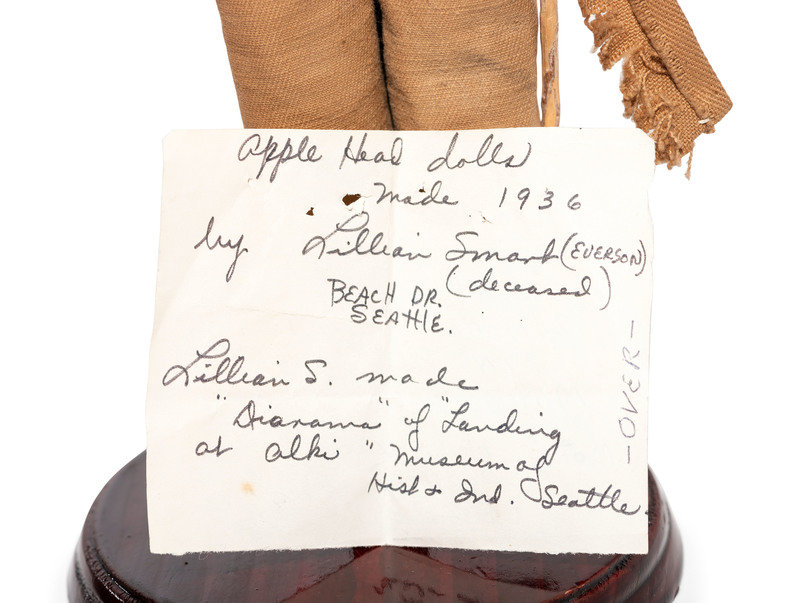 Apple Head dolls
made 1936
by Lillian Smart (EVERSON)
(deceased)
BEACH DR.
SEATTLE.
Lillian S. made
"Diarama" of "Landing
at Alki" Museum of
Hist & Ind. Seattle.
-OVER-